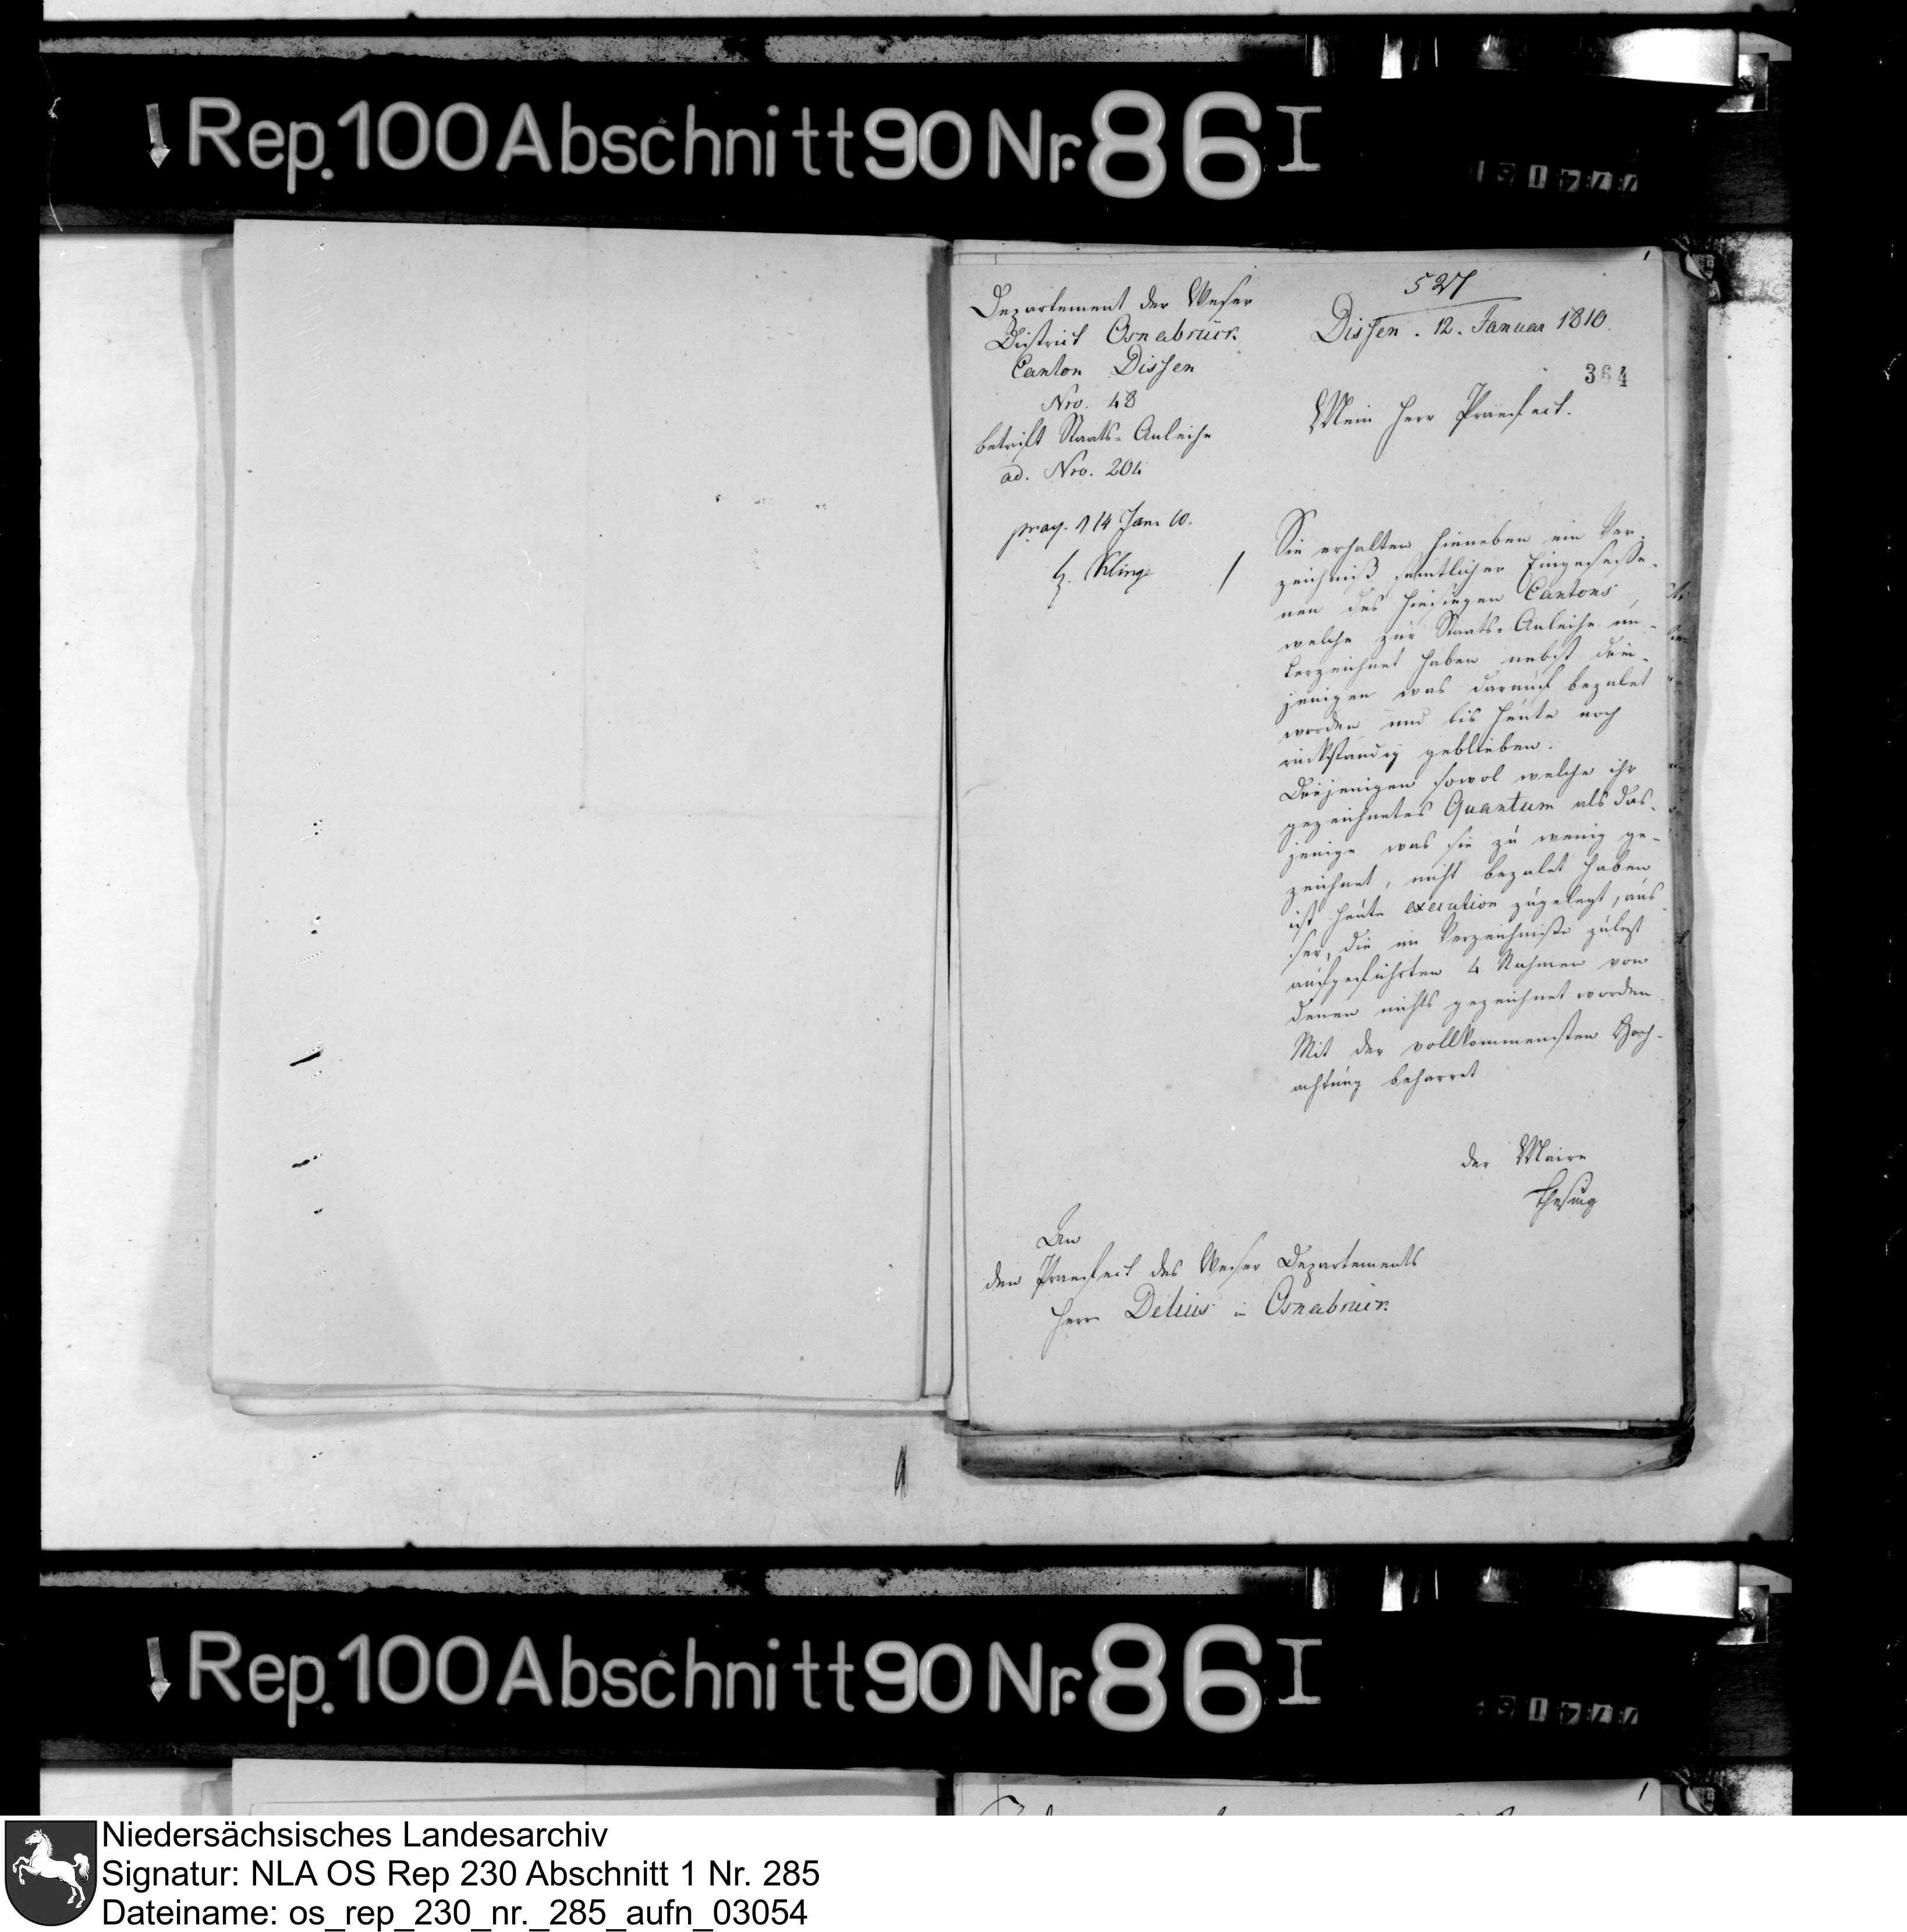 Rep. 100 Abschnitt 90 Nr. 86 I
527
Departement der Weser
District Osnabrück
Canton Dissen
Nro. 48
betrift Staats-Anleihe
ad. Nro. 204
14 Jan 10.
Dissen. 12. Januar 1810.
364
Mein Herr Praefect.
Sie erhalten hieneben ein Ver-
zeichniß samtlicher Eingeseße-
nen des hiesigen Cantons,
welche zur Staats-Anleihe un-
terzeichnet haben nebst dem-
jenigen was darauf bezalet
worden und bis heute noch
rückständig geblieben.
Diejenigen sowol welche ihr
gezeichnetes Quantum als das-
jenige was sie zu wenig ge-
zeichnet, nicht bezalet haben
ist heute execution zugelegt, aus-
ser, die im Verzeichniße zulezt
aufgeführten 4 Nahmen von
denen nichts gezeichnet worden
Mit der vollkommensten Hoch-
achtung beharret
der Maire
An
den Praefect des Weser Departements
Herr Delius in Osnabrück
Rep. 100 Abschnitt 90 Nr. 86 I
Niedersächsisches Landesarchiv
Signatur: NLA OS Rep 230 Abschnitt 1 Nr. 285
Dateiname: os_rep_230_nr._285_aufn_03054